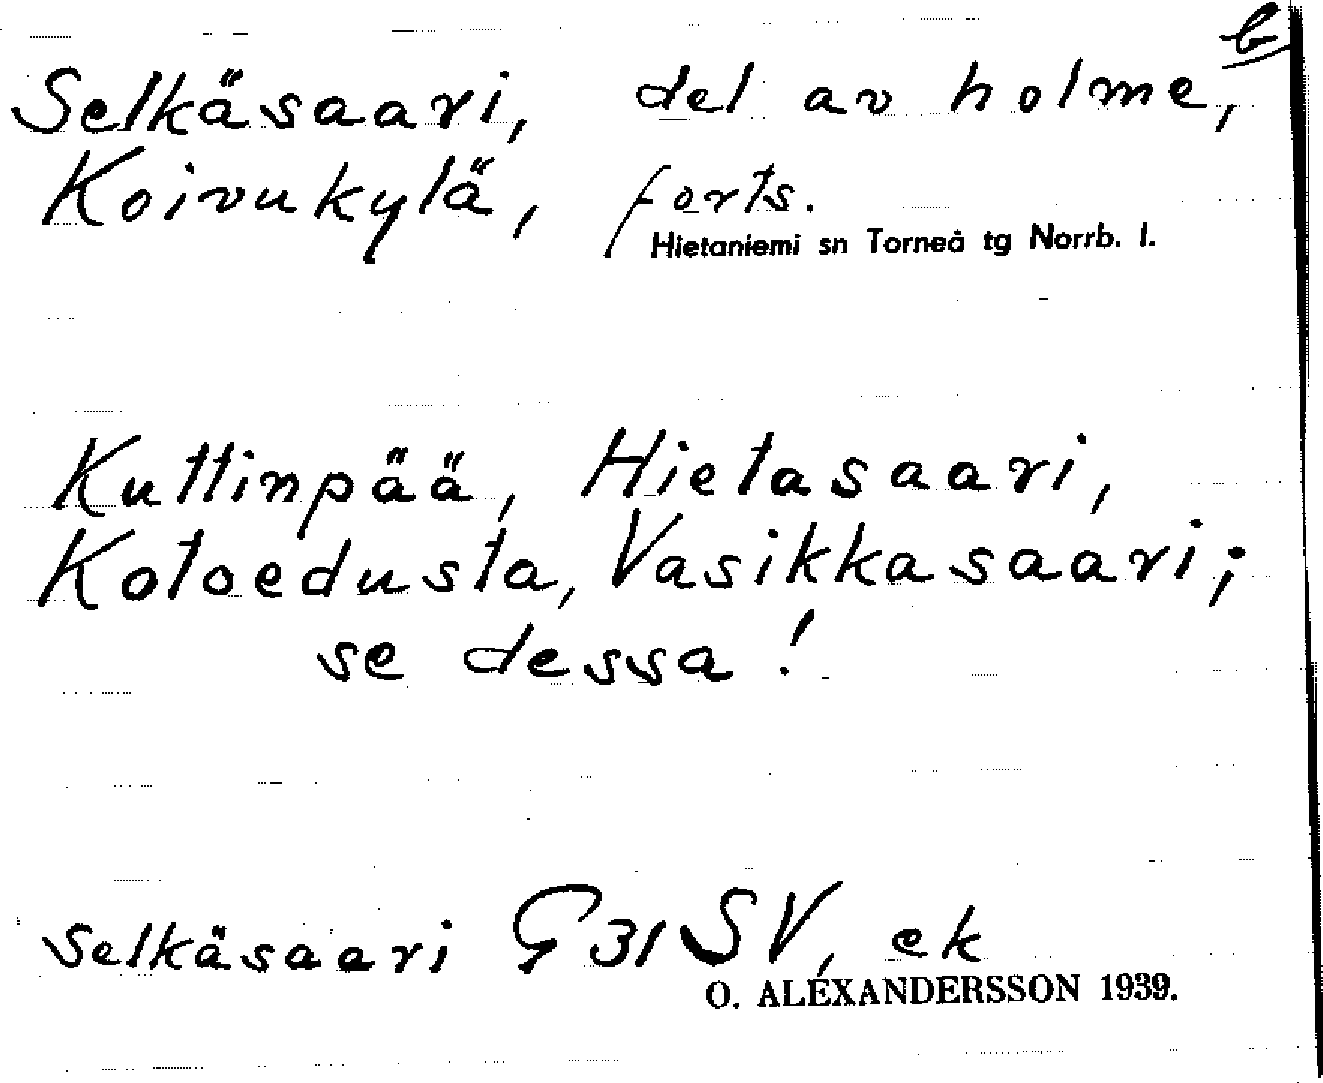 b
Selkäsaari, del av holme,
Koivukylä, forts.
Hietaniemi sn Torneå tg Norrb. l.
Kuttinpää, Hietasaari,
Kotoedusta, Vasikkasaari;
se dessa!
Selkäsaari G 31 SV, ek
O. ALEXANDERSSON 1939.